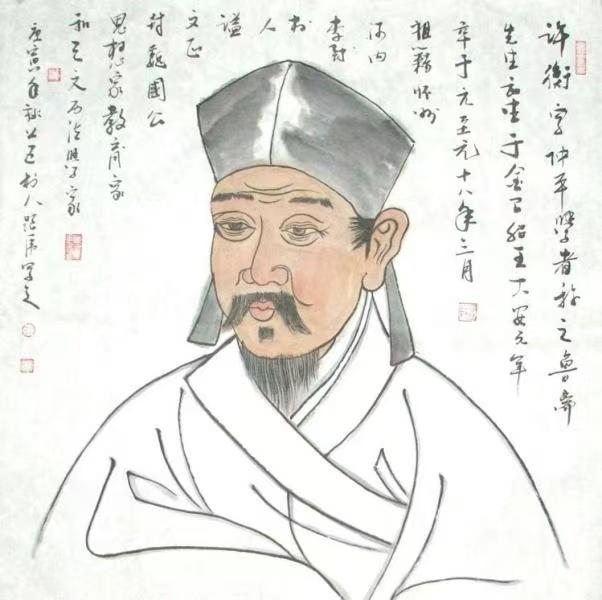 许衡字仲平学者称之鲁斋
先生 生于金 绍王大安元年
卒于元至元十八年三月
祖籍怀州
河内
李封
村
人
谥
文正
封魏国公
思想家教育家
和天文历法学家
庚寅年秋 村人